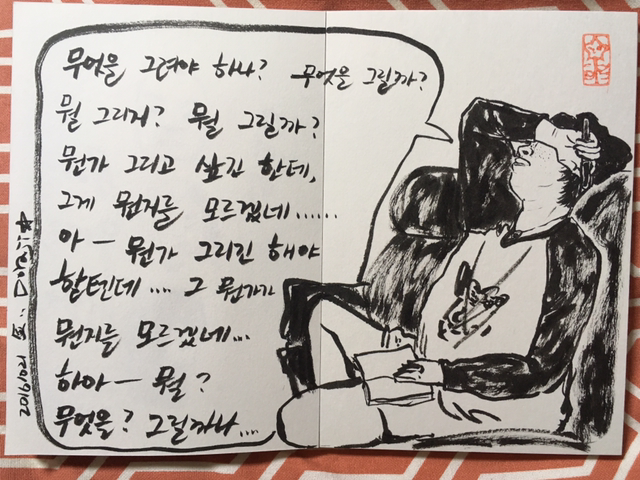 무엇을 그려야 하나? 무엇을 그릴까?
뭘 그리지? 뭘 그릴까?
뭔가 그리고 싶긴 한데,
그게 뭔지를 모르겠네......
아 — 뭔가 그리긴 해야
할텐데.... 그 뭔가가
뭔지를 모르겠네...
하아 — 뭘?
무엇을? 그릴까나....